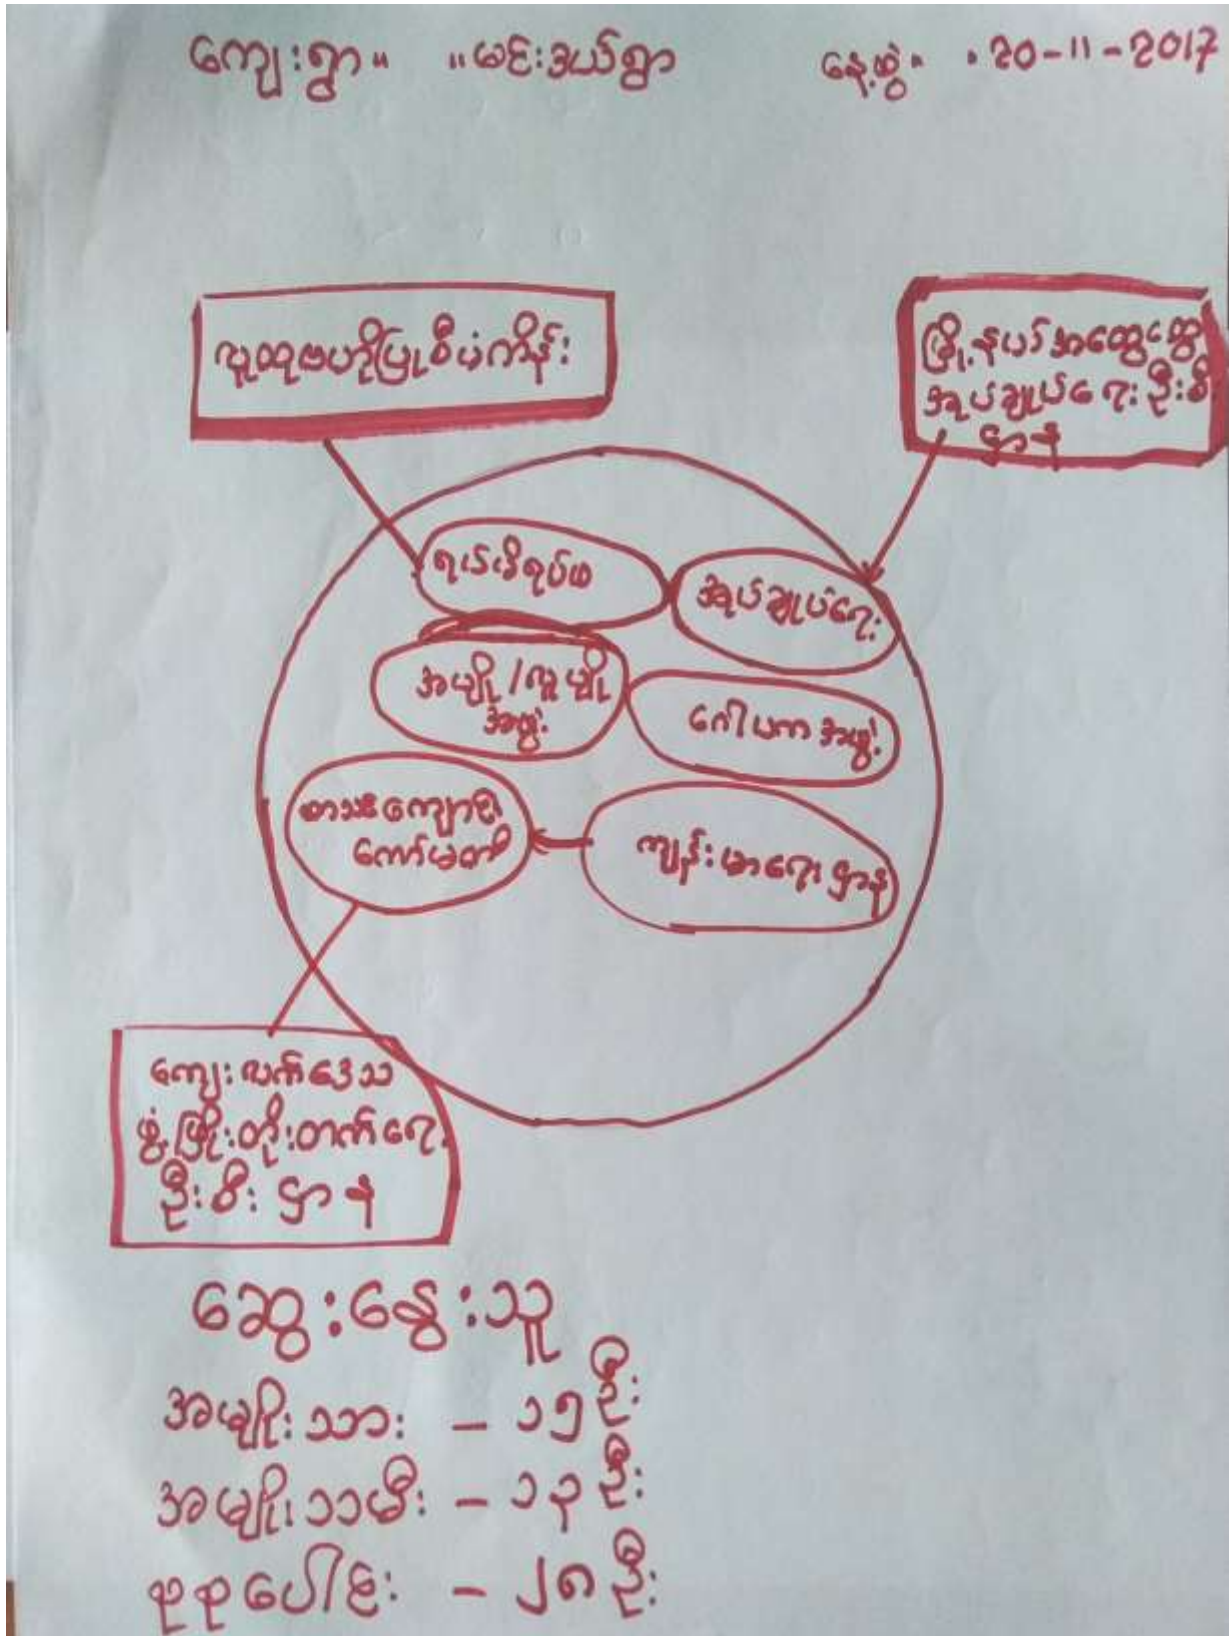 ကျေးရွာ။ ။မင်းဒယ်ရွာ နေ့စွဲ။ ။20-11-2017
လူထုဗဟိုပြုစီမံကိန်း
မြို့နယ်အထွေထွေ
အုပ်ချုပ်ရေးဦးစီး
ဌာန
ရပ်မိရပ်ဖ
အုပ်ချုပ်ရေး
အပျို/လူပျို
အဖွဲ့
ဂေါပကအဖွဲ့
စာသင်ကျောင်း
ကော်မတီ
ကျန်းမာရေးဌာန
ကျေးလက်ဒေသ
ဖွံ့ဖြိုးတိုးတက်ရေး
ဦးစီးဌာန
ဆွေးနွေးသူ
အမျိုးသား - ၁၅ဦး
အမျိုးသမီး - ၁၃ဦး
စုစုပေါင်း - ၂၈ဦး